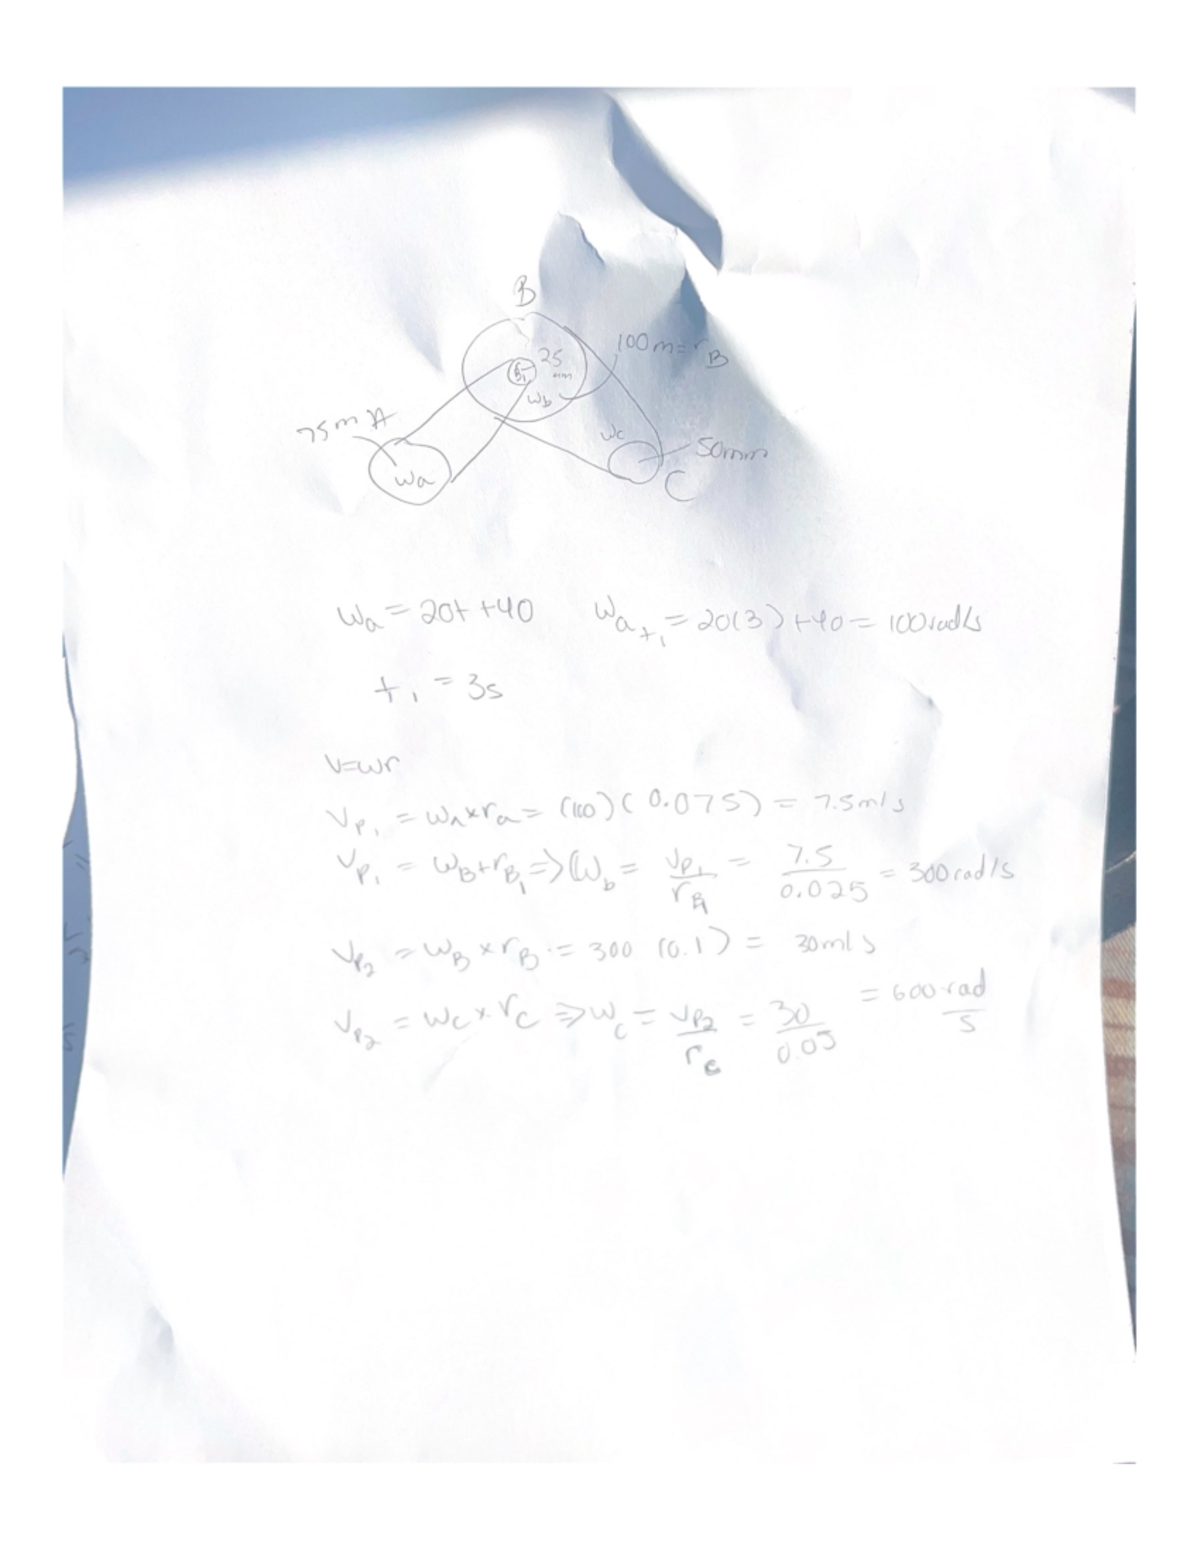 B
100m=rB
25
mm
B1
wb
75m A
wc
50mm
wa
C
wa = 20t +40    wa t1 = 20(3)+40 = 100rad/s
t1 = 3s
V=wr
Vp1 = wA×ra = (100)(0.075) = 7.5m/s
Vp1 = wB+rB1 => wb = Vp1/rB1 = 7.5/0.025 = 300rad/s
Vp2 = wB × rB = 300 (0.1) = 30m/s
Vp2 = wc × rc => wc = Vp2/rc = 30/0.05 = 600 rad/s